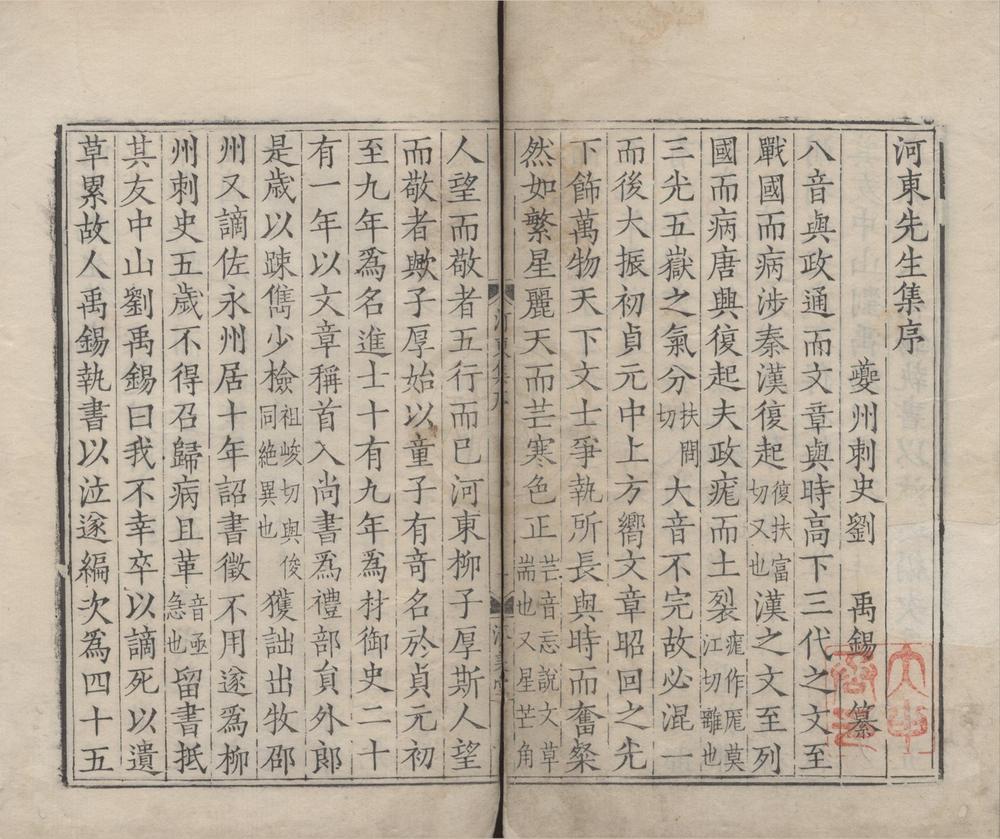 河東先生集序
夔州刺史劉 禹錫 纂
八音與政通而文章與時高下三代之文至
戰國而病涉秦漢復起復扶富切又也漢之文至列
國而病唐興復起夫政痝而土裂痝作厖莫江切雜也
三光五嶽之氣分扶問切大音不完故必混一
而後大振初貞元中上方嚮文章昭回之光
下飾萬物天下文士爭執所長與時而奮粲
然如繁星麗天而芒寒色正芒音忘說文草耑也又星芒角
人望而敬者五行而已河東柳子厚斯人望
而敬者歟子厚始以童子有奇名於貞元初
至九年為名進士十有九年為材御史二十
有一年以文章稱首入尚書為禮部員外郎
是歲以踈雋少檢祖峻切與俊同絕異也獲訕出牧邵
州又謫佐永州居十年詔書徵不用遂為柳
州刺史五歲不得召歸病且革音亟急也留書抵
其友中山劉禹錫曰我不幸卒以謫死以遺
草累故人禹錫執書以泣遂編次為四十五
河東集序